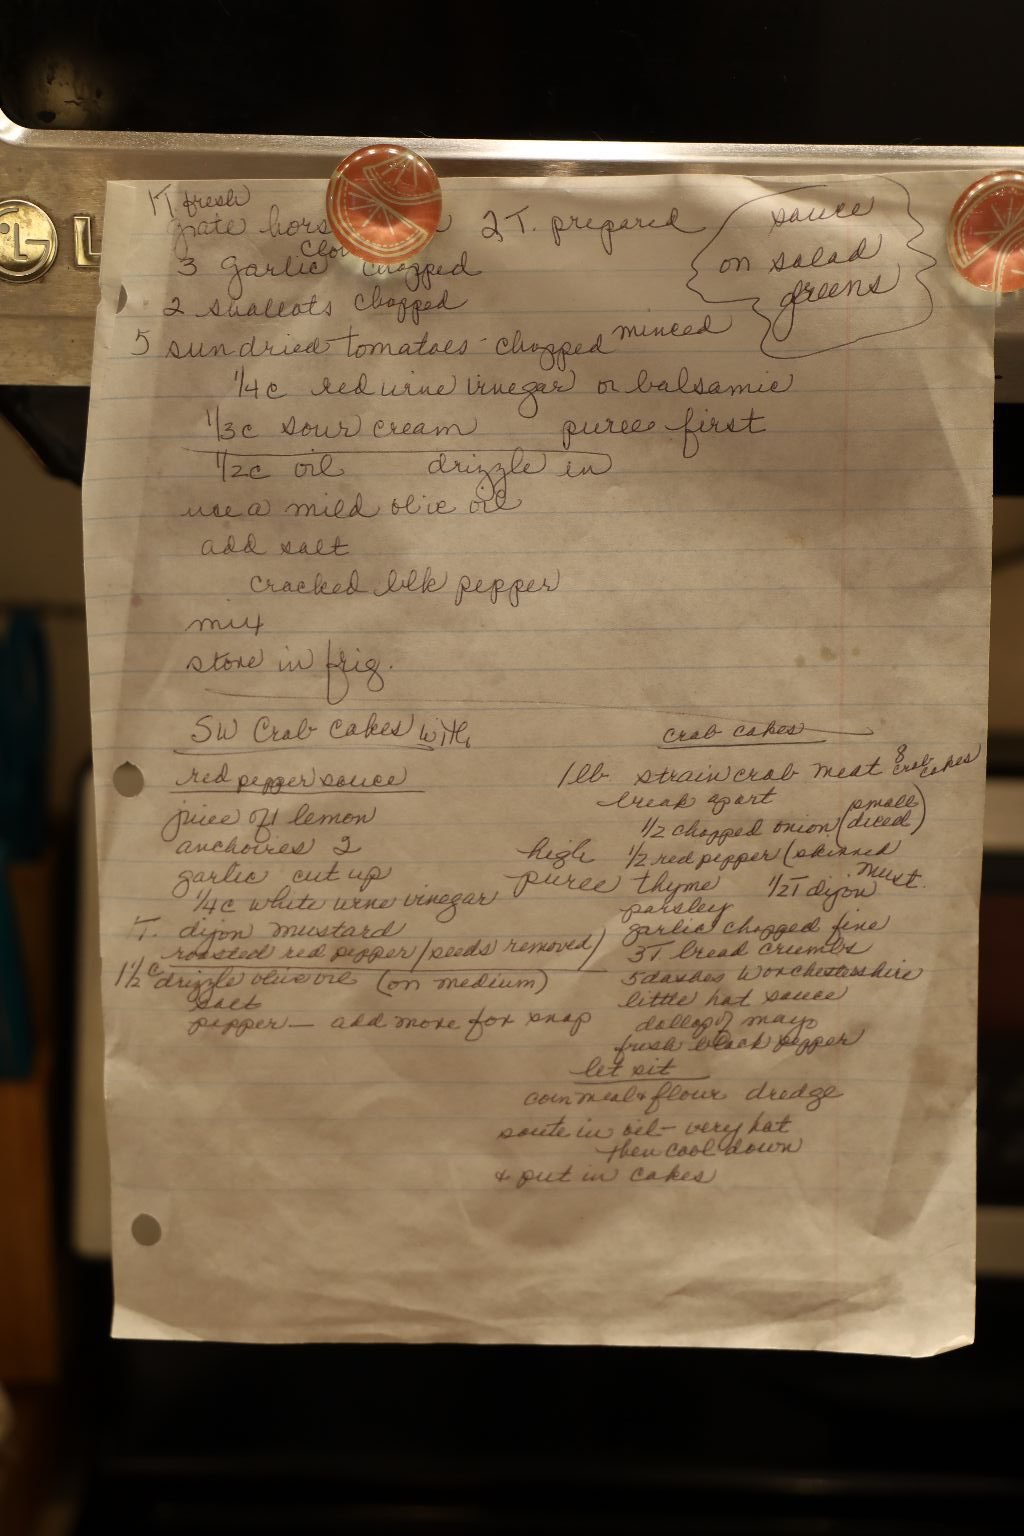 LG L
1T. fresh
grate hors 2T. prepared
3 garlic chopped
2 shallots chopped
5 sundried tomatoes - chopped minced
1/4 c red wine vinegar or balsamic
1/3 c sour cream puree first
1/2 c oil drizzle in
use a mild olive oil
add salt
cracked blk pepper
mix
store in frig.
sauce
on salad
greens
SW Crab Cakes with
red pepper sauce
juice of 1 lemon
anchoires 2
garlic cut up
1/4 c white wine vinegar
1T. dijon mustard
roasted red pepper (seeds removed)
1 1/2 c drizzle olive oil (on medium)
salt
pepper — add more for snap
high
puree
crab cakes
1 lb strain crab meat 8 crab cakes
break apart
1/2 chopped onion (small diced)
1/2 red pepper (skinned
thyme 1/2 T dijon must.
parsley
garlic chopped fine
3T bread crumbs
5 dashes Worchestershire
little hot sauce
dollop of mayo
fresh black pepper
let sit
cornmeal & flour dredge
saute in oil - very hot
then cool down
& put in cakes